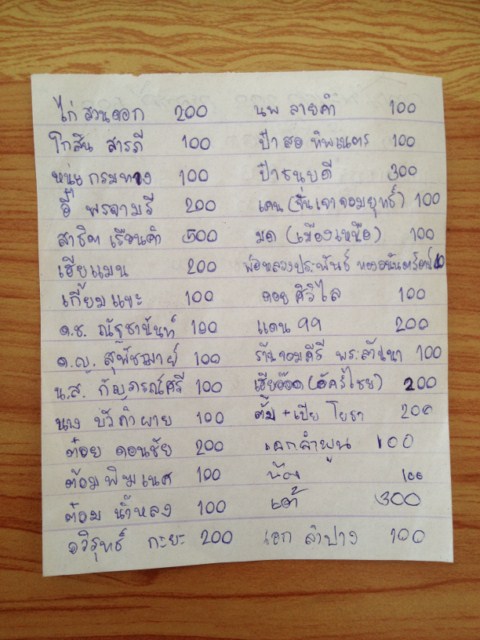 ไก่ สวนดอก 200
โกสิน สารภี 100
หนุ่ย กรมทาง 100
อี๊ พระรามรี 200
สาธิต เรือนคำ 500
เฮียแมน 200
เกี้ยมแซะ 100
ด.ช. ณัฐชานันท์ 100
ด.ญ. สุพิชฌาย์ 100
น.ส. กัญภรณ์ศรี 100
นาง บัวคำ ผาย 100
ต๋อย ดอนชัย 200
ต้อม พิฆเนศ 100
ต้อม น้ำหลง 100
อวิรุทธ์ กะยะ 200
นพ ลายคำ 100
ป้า สอ ทิพเนตร 100
ป๋าธนบดี 300
เดน (จอมยุทธ์) 100
มด (เมืองเหนือ) 100
พ่อหลวงประพันธ์
ดอย ศิริไล 100
แดน 99 200
ร้านจอมคีรี พระล้านนา 100
เฮียอ๊อด (อัครไชย) 200
ตั้ม + เปีย โยธา 200
เอกลำพูน 100
น้อง 100
เต้ 300
เอก ลำปาง 100